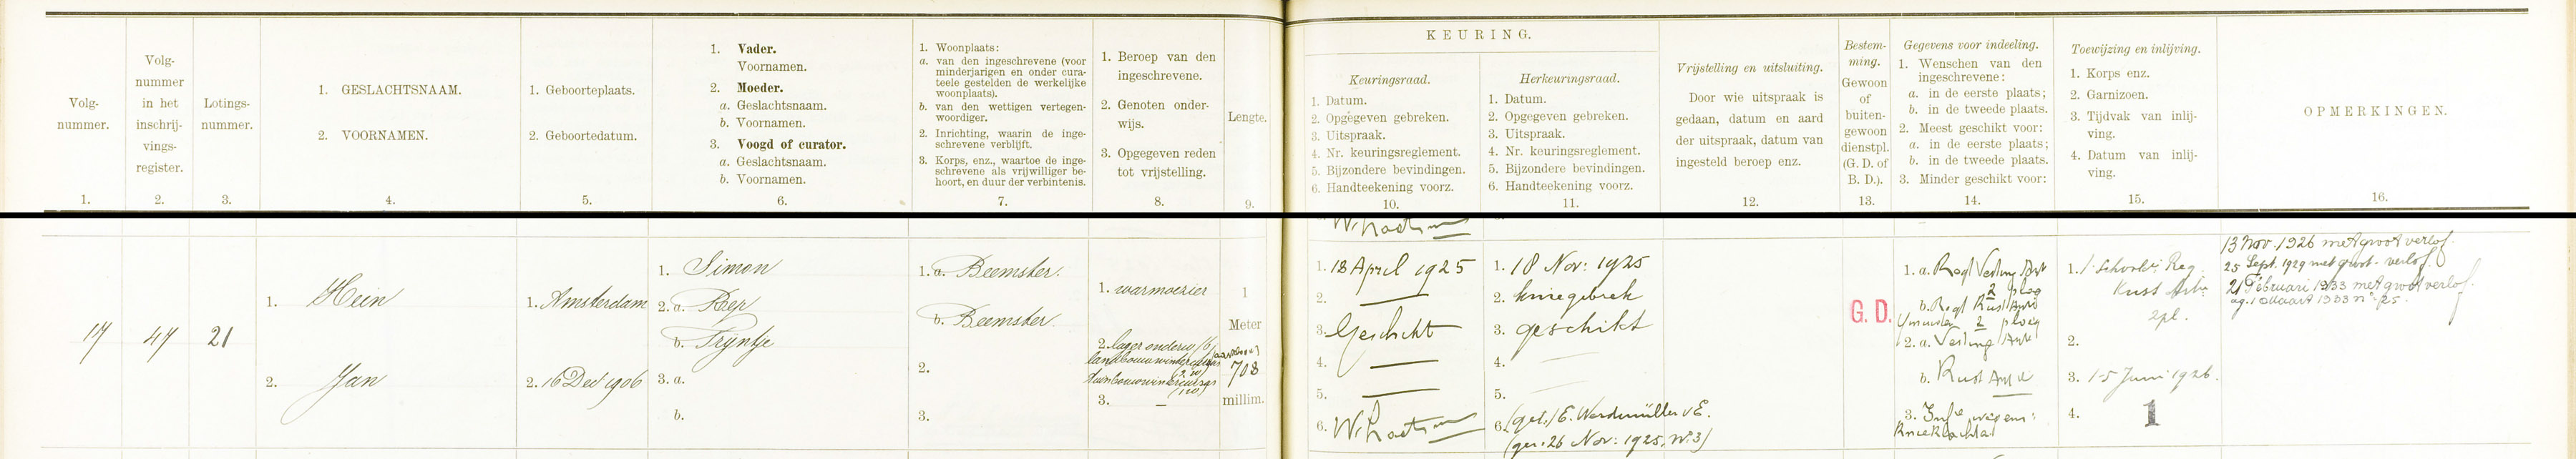 Volg-
nummer.
1.
Volg-
nummer
in het
inschrij-
vings-
register.
2.
Lotings-
nummer.
3.
1. GESLACHTSNAAM.
2. VOORNAMEN.
4.
1. Geboorteplaats.
2. Geboortedatum.
5.
1. Vader.
Voornamen.
2. Moeder.
a. Geslachtsnaam.
b. Voornamen.
3. Voogd of curator.
a. Geslachtsnaam.
b. Voornamen.
6.
1. Woonplaats:
a. van den ingeschrevene (voor
minderjarigen en onder cura-
teele gestelden de werkelijke
woonplaats).
b. van den wettigen vertegen-
woordiger.
2. Inrichting, waarin de inge-
schrevene verblijft.
3. Korps, enz., waartoe de inge-
schrevene als vrijwilliger be-
hoort, en duur der verbintenis.
7.
1. Beroep van den
ingeschrevene.
2. Genoten onder-
wijs.
3. Opgegeven reden
tot vrijstelling.
8.
Lengte.
9.
KEURING.
Keuringsraad.
1. Datum.
2. Opgegeven gebreken.
3. Uitspraak.
4. Nr. keuringsreglement.
5. Bijzondere bevindingen.
6. Handteekening voorz.
10.
Herkeuringsraad.
1. Datum.
2. Opgegeven gebreken.
3. Uitspraak.
4. Nr. keuringsreglement.
5. Bijzondere bevindingen.
6. Handteekening voorz.
11.
Vrijstelling en uitsluiting.
Door wie uitspraak is
gedaan, datum en aard
der uitspraak, datum van
ingesteld beroep enz.
12.
Bestem-
ming.
Gewoon
of
buiten-
gewoon
dienstpl.
(G. D. of
B. D.).
13.
Gegevens voor indeeling.
1. Wenschen van den
ingeschrevene:
a. in de eerste plaats;
b. in de tweede plaats.
2. Meest geschikt voor:
a. in de eerste plaats;
b. in de tweede plaats.
3. Minder geschikt voor:
14.
Toewijzing en inlijving.
1. Korps enz.
2. Garnizoen.
3. Tijdvak van inlij-
ving.
4. Datum van inlij-
ving.
15.
OPMERKINGEN.
16.
17
47
21
1. Hein
2. Jan
1. Amsterdam
2. 16 Dec 1906
1. Simon
2. a. Rep
b. Trijntje
3. a.
b.
1. a. Beemster.
b. Beemster
2.
3.
1. warmoezier
2. lager onderw (6
3. —
1
Meter
708
millim.
1. 18 April 1925
2. —
3. Geschikt
4. —
5. —
6.
1. 18 Nov: 1925
2. kniegebrek
3. geschikt
4. —
5. —
6. (get.) E. Werdmüller v E.
(ger. 26 Nov: 1925, No 3)
G. D.
1. a. Regt Vesting Art
2 ploeg
b. Regt Kust Art
2 ploeg
2. a. Vesting Art
b. Kust Art
3. Inf wegens:
Knieklachten
1. Reg
Kust Art
2 pl.
2.
3. 1-5 Juni 1926.
4. 1
13 Nov. 1926 met groot verlof.
25 Sept. 1929 met groot-verlof.
21 Februari 1933 met groot verlof.
1 Maart 1933 n° 25.